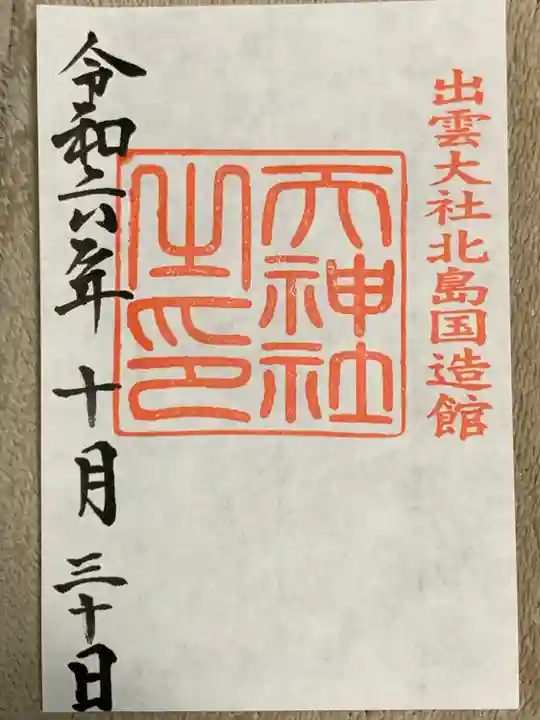 出雲大社北島国造館
天神社
之印
令和六年十月三十日